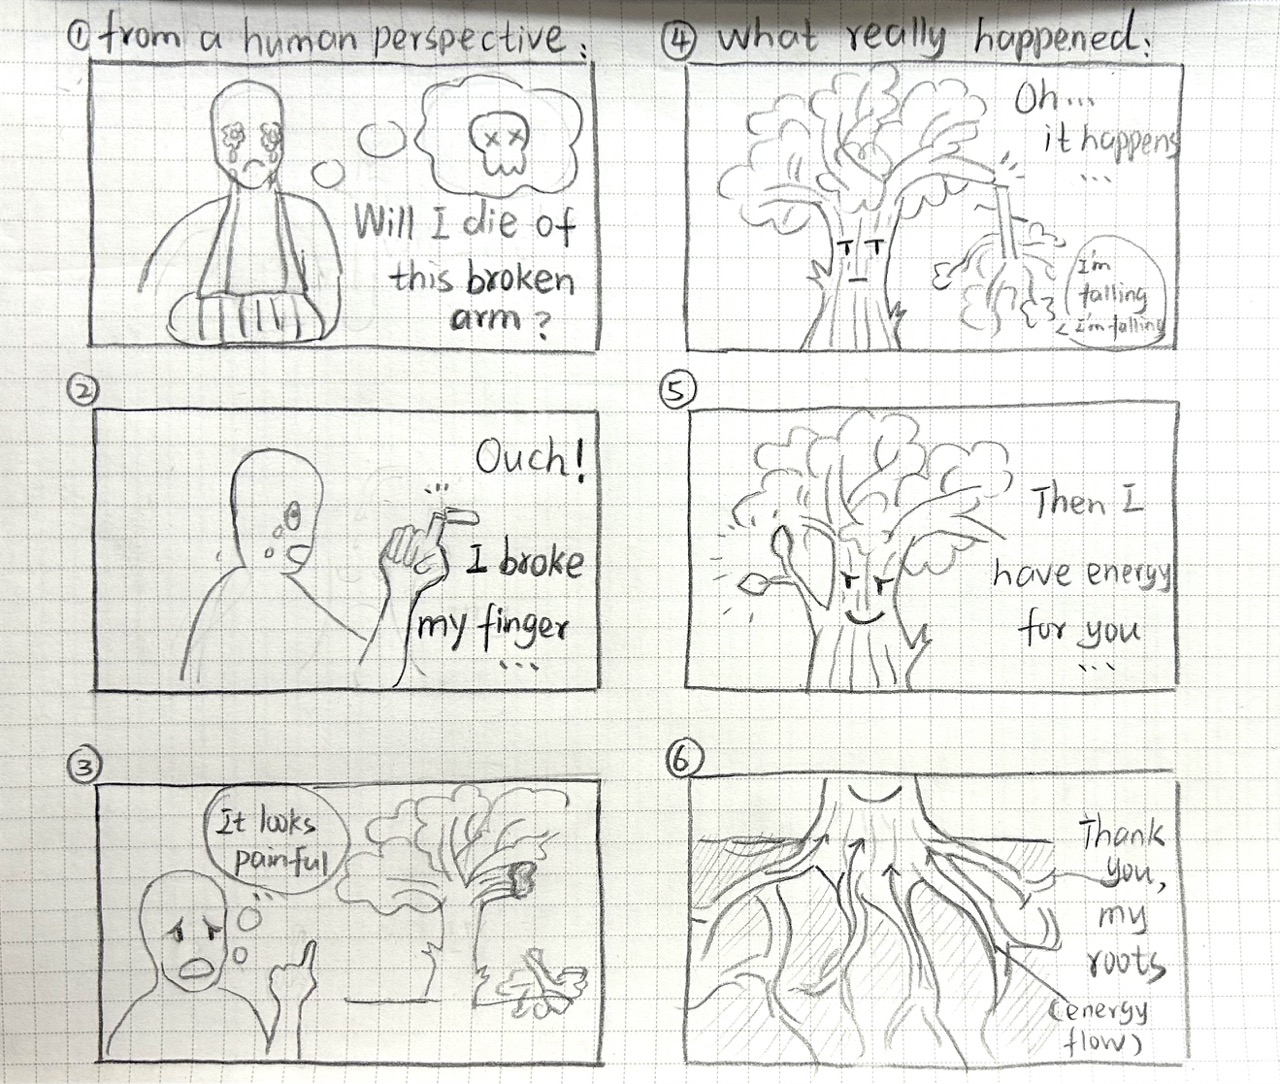 ① from a human perspective:
Will I die of
this broken
arm?
②
Ouch!
I broke
my finger
...
③
It looks
painful
...
④ what really happened:
Oh...
it happens
...
I'm
falling
I'm falling
⑤
Then I
have energy
for you
...
⑥
Thank
you,
my
roots
(energy
flow)